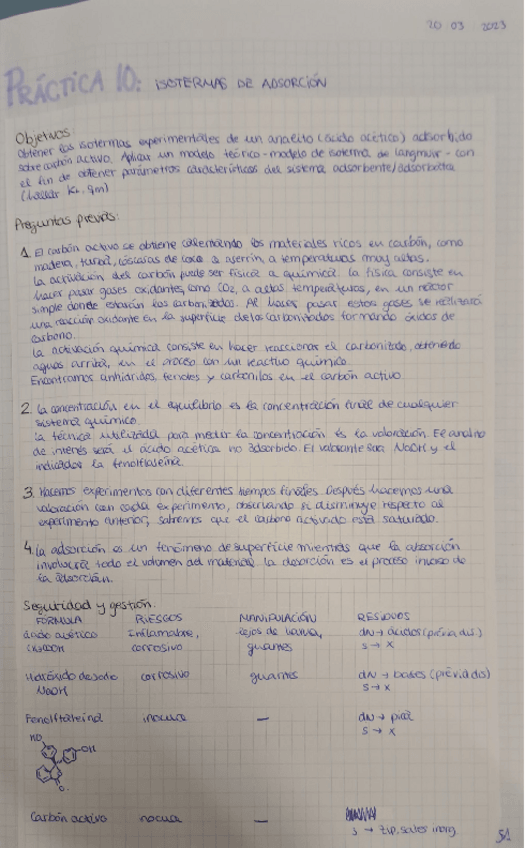 20 03 2023
PRÁCTICA 10: ISOTERMAS DE ADSORCIÓN
Objetivos:
Obtener las isotermas experimentales de un analito (ácido acético) adsorbido
sobre carbón activo. Aplicar un modelo teórico - modelo de isoterma de langmuir - con
el fin de obtener parámetros característicos del sistema adsorbente/adsorbato
(hallar KL, qm)
Preguntas previas:
1. El carbón activo se obtiene calentando los materiales ricos en carbón, como
madera, turba, cáscaras de coco o aserrín, a temperaturas muy altas.
La activación del carbón puede ser física o química. la física consiste en
hacer pasar gases oxidantes, como CO2, a altas temperaturas, en un reactor
simple donde estarán los carbonizados. Al hacer pasar estos gases se realizará
una reacción oxidante en la superficie de los carbonizados formando óxidos de
carbono.
La activación química consiste en hacer reaccionar el carbonizado, obtenido
aguas arriba, en el proceso con un reactivo químico.
Encontramos anhídridos, fenoles y carbonilos en el carbón activo
2. la concentración en el equilibrio es la concentración final de cualquier
sistema químico.
la técnica utilizada para medir la concentración es la valoración. El analito
de interés será el ácido acético no adsorbido. El valorante sera NaOH y el
indicador la fenolftaleína.
3. Hacemos experimentos con diferentes tiempos finales. Después hacemos una
valoración con cada experimento, observando si disminuye respecto al
experimento anterior, sabremos que el carbono activado está saturado.
4. la adsorción es un fenómeno de superficie mientras que la absorción
involucra todo el volumen del material. la desorción es el proceso inverso de
la adsorción.
Seguridad y gestión:
FÓRMULA RIESGOS MANIPULACIÓN RESIDUOS
ácido acético inflamable, lejos de llama, dN → ácidos (prévia dis.)
CH3COOH corrosivo guantes s → x
Hidróxido de sodio corrosivo guantes dN → bases (prévia dis)
NaOH s → x
Fenolftaleína inocua — dN → pica
s → x
HO
OH
O
Carbón activo nocua —
s → zip, sales inorg
51